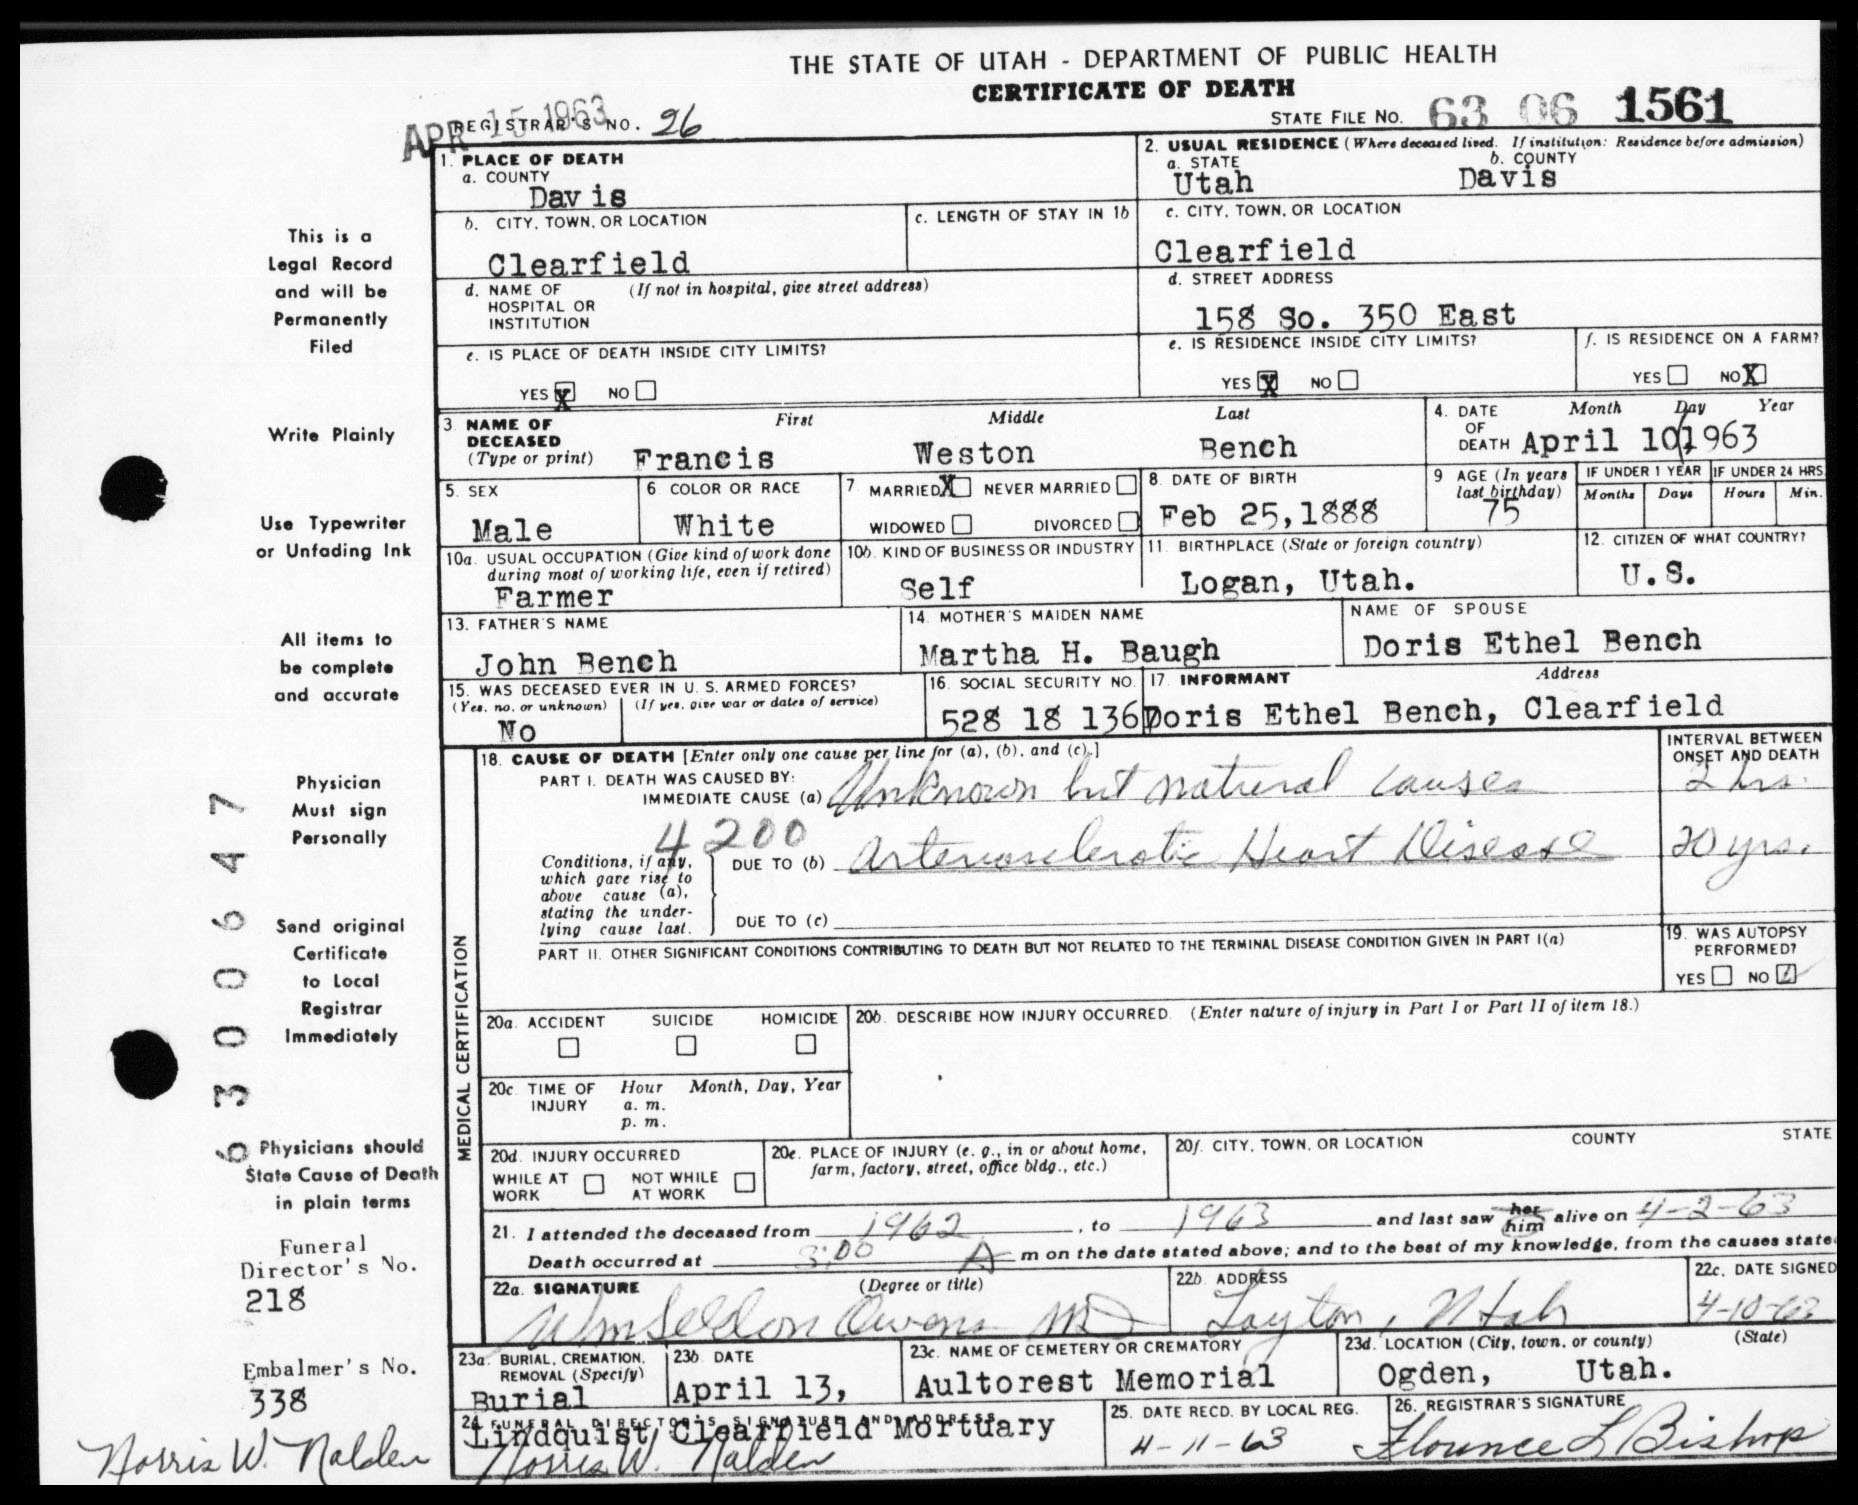 THE STATE OF UTAH - DEPARTMENT OF PUBLIC HEALTH
CERTIFICATE OF DEATH
APR 15 1963
REGISTRAR'S NO. 26
STATE FILE NO. 63 06 1561
1. PLACE OF DEATH
a. COUNTY
Davis
2. USUAL RESIDENCE (Where deceased lived. If institution: Residence before admission)
a. STATE b. COUNTY
Utah Davis
b. CITY, TOWN, OR LOCATION
Clearfield
c. LENGTH OF STAY IN 1b
c. CITY, TOWN, OR LOCATION
Clearfield
d. NAME OF (If not in hospital, give street address)
HOSPITAL OR
INSTITUTION
d. STREET ADDRESS
158 So. 350 East
e. IS PLACE OF DEATH INSIDE CITY LIMITS?
YES X NO
e. IS RESIDENCE INSIDE CITY LIMITS?
YES X NO
f. IS RESIDENCE ON A FARM?
YES NO X
3. NAME OF DECEASED
(Type or print)
First Middle Last
Francis Weston Bench
4. DATE OF DEATH
Month Day Year
April 10, 1963
5. SEX
Male
6 COLOR OR RACE
White
7 MARRIED X NEVER MARRIED
WIDOWED DIVORCED
8. DATE OF BIRTH
Feb 25,1888
9 AGE (In years
last birthday)
75
IF UNDER 1 YEAR IF UNDER 24 HRS.
Months Days Hours Min.
10a. USUAL OCCUPATION (Give kind of work done
during most of working life, even if retired)
Farmer
10b. KIND OF BUSINESS OR INDUSTRY
Self
11. BIRTHPLACE (State or foreign country)
Logan, Utah.
12. CITIZEN OF WHAT COUNTRY?
U.S.
13. FATHER'S NAME
John Bench
14. MOTHER'S MAIDEN NAME
Martha H. Baugh
NAME OF SPOUSE
Doris Ethel Bench
15. WAS DECEASED EVER IN U. S. ARMED FORCES?
(Yes, no, or unknown) (If yes, give war or dates of service)
No
16. SOCIAL SECURITY NO.
528 18 136
17. INFORMANT Address
Doris Ethel Bench, Clearfield
MEDICAL CERTIFICATION
18. CAUSE OF DEATH [Enter only one cause per line for (a), (b), and (c).]
INTERVAL BETWEEN
ONSET AND DEATH
PART I. DEATH WAS CAUSED BY:
IMMEDIATE CAUSE (a) Unknown but natural causes 2 hrs.
4200
Conditions, if any,
which gave rise to
above cause (a),
stating the under-
lying cause last.
DUE TO (b) Arteriosclerotic Heart Disease 20 yrs.
DUE TO (c)
PART II. OTHER SIGNIFICANT CONDITIONS CONTRIBUTING TO DEATH BUT NOT RELATED TO THE TERMINAL DISEASE CONDITION GIVEN IN PART I(a)
19. WAS AUTOPSY
PERFORMED?
YES NO
20a. ACCIDENT SUICIDE HOMICIDE
20b. DESCRIBE HOW INJURY OCCURRED. (Enter nature of injury in Part I or Part II of item 18.)
20c. TIME OF INJURY
Hour Month, Day, Year
a. m.
p. m.
20d. INJURY OCCURRED
WHILE AT WORK NOT WHILE AT WORK
20e. PLACE OF INJURY (e. g., in or about home,
farm, factory, street, office bldg., etc.)
20f. CITY, TOWN, OR LOCATION COUNTY STATE
21. I attended the deceased from 1962, to 1963 and last saw her him alive on 4-2-63
Death occurred at 3:00 A m on the date stated above; and to the best of my knowledge, from the causes state
22a. SIGNATURE (Degree or title)
Wm Seldon Owens MD
22b. ADDRESS
Layton, Utah
22c. DATE SIGNED
4-10-63
23a. BURIAL, CREMATION,
REMOVAL (Specify)
Burial
23b. DATE
April 13,
23c. NAME OF CEMETERY OR CREMATORY
Aultorest Memorial
23d. LOCATION (City, town, or county) (State)
Ogden, Utah.
24. FUNERAL DIRECTOR'S SIGNATURE AND ADDRESS
Lindquist Clearfield Mortuary
Norris W. Nalder
25. DATE RECD. BY LOCAL REG.
4-11-63
26. REGISTRAR'S SIGNATURE
Flounce L Bishop
This is a
Legal Record
and will be
Permanently
Filed
Write Plainly
Use Typewriter
or Unfading Ink
All items to
be complete
and accurate
Physician
Must sign
Personally
Send original
Certificate
to Local
Registrar
Immediately
Physicians should
State Cause of Death
in plain terms
6300647
Funeral
Director's No.
218
Embalmer's No.
338
Norris W. Nalder